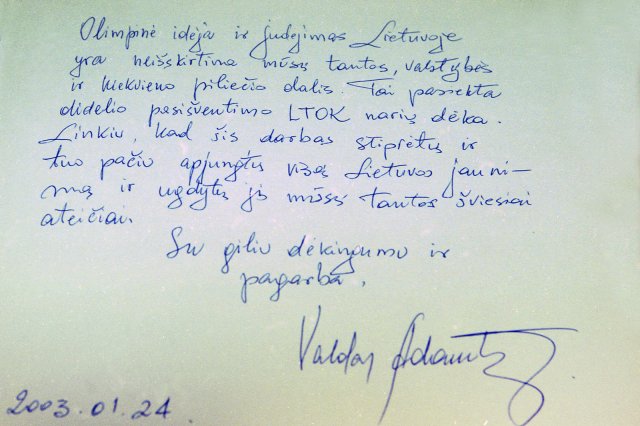 Olimpinė idėja ir judėjimas Lietuvoje
yra neišskirtina mūsų tautos, valstybės
ir kiekvieno piliečio dalis. Tai pasiekta
didelio pasišventimo LTOK narių dėka.
Linkiu, kad šis darbas stiprėtų ir
tuo pačiu apjungtų visą Lietuvos jauni-
mą ir ugdytų jį mūsų tautos šviesiai
ateičiai.
Su giliu dėkingumu ir
pagarba,
Valdas Adamkus
2003.01.24